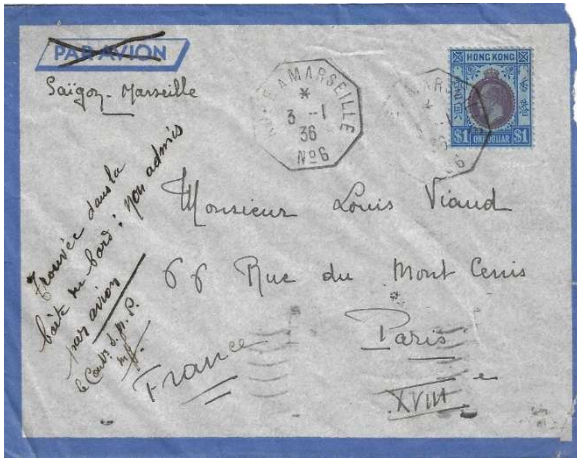 PAR AVION
Saïgon - Marseille
A MARSEILLE
*
3 -1
36
Nº6
HONG KONG
$1 ONE DOLLAR $1
MARS
36
Trouvée dans la
boîte du bord : non admis
par avion
Monsieur Louis Viaud
66 Rue du Mont Cenis
Paris
XVIII e
France